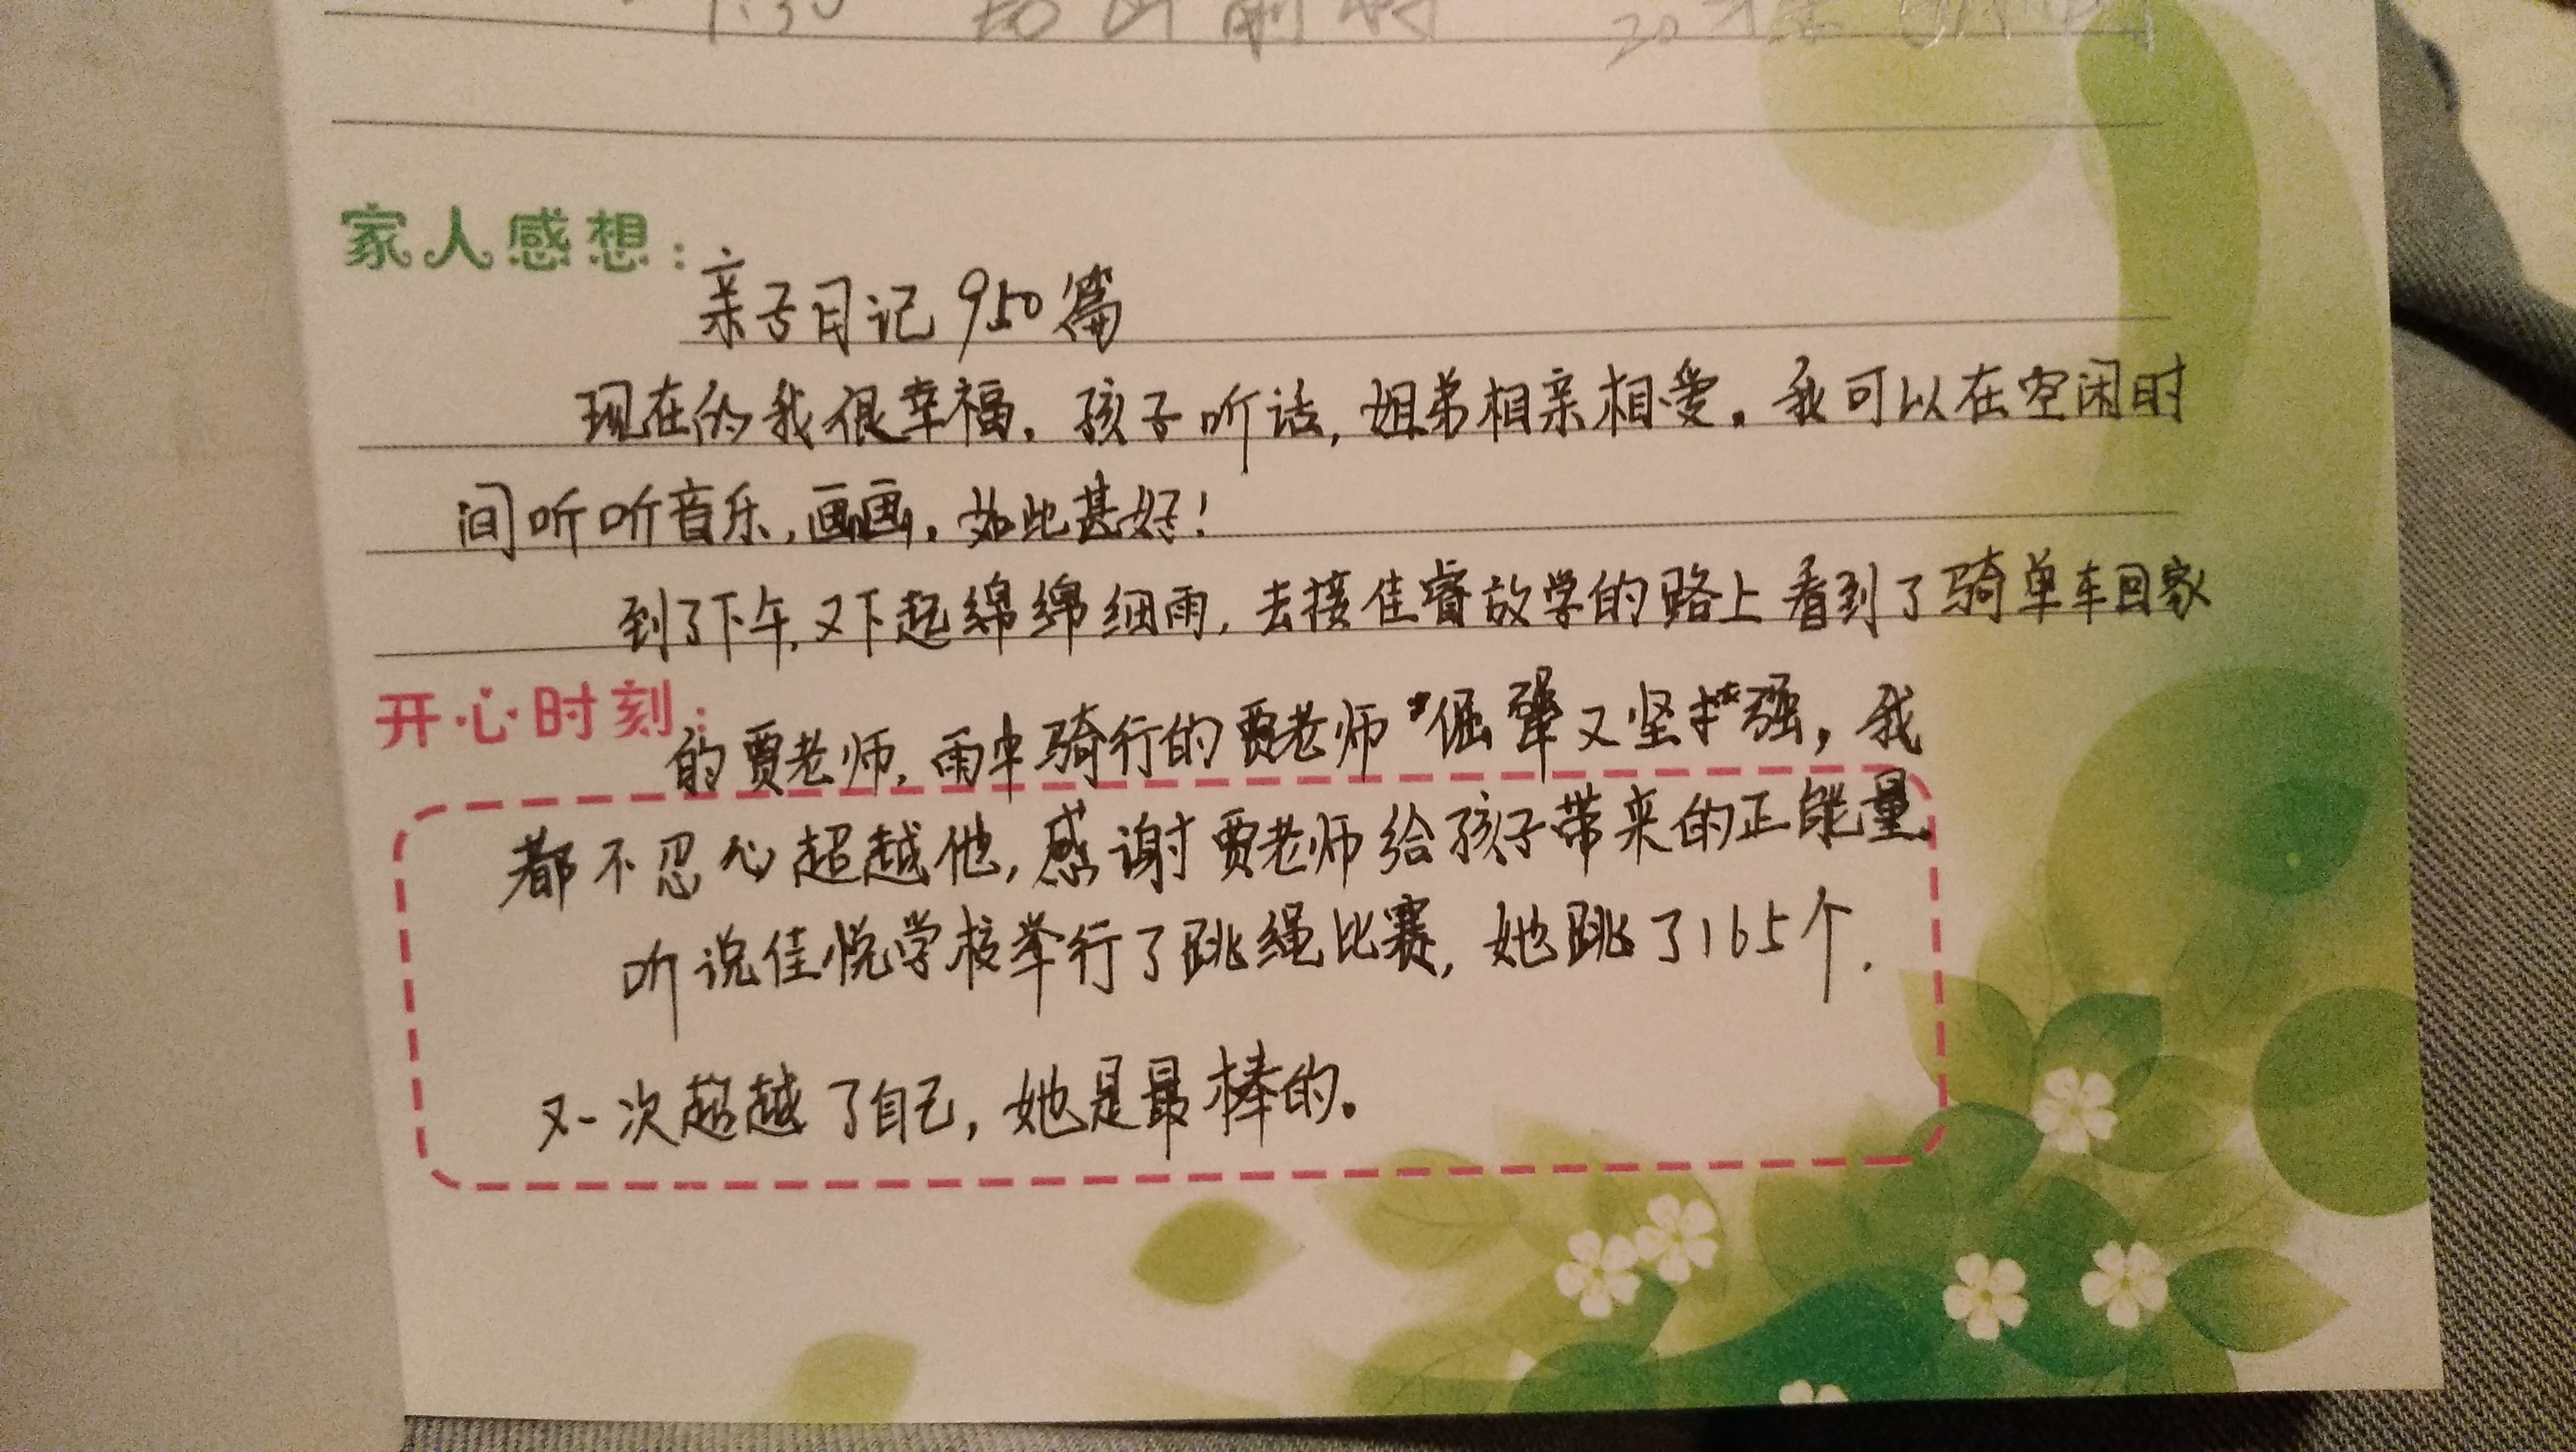 1:30
家人感想:
亲子日记950篇
现在的我很幸福。孩子听话,姐弟相亲相爱。我可以在空闲时
间听听音乐,画画。如此甚好!
到了下午,又下起绵绵细雨,去接佳睿放学的路上看到了骑单车回家
开心时刻:
的贾老师,雨中骑行的贾老师"倔犟又坚强,我
都不忍心超越他,感谢贾老师给孩子带来的正能量
听说佳悦学校举行了跳绳比赛,她跳了165个.
又一次超越了自己,她是最棒的。